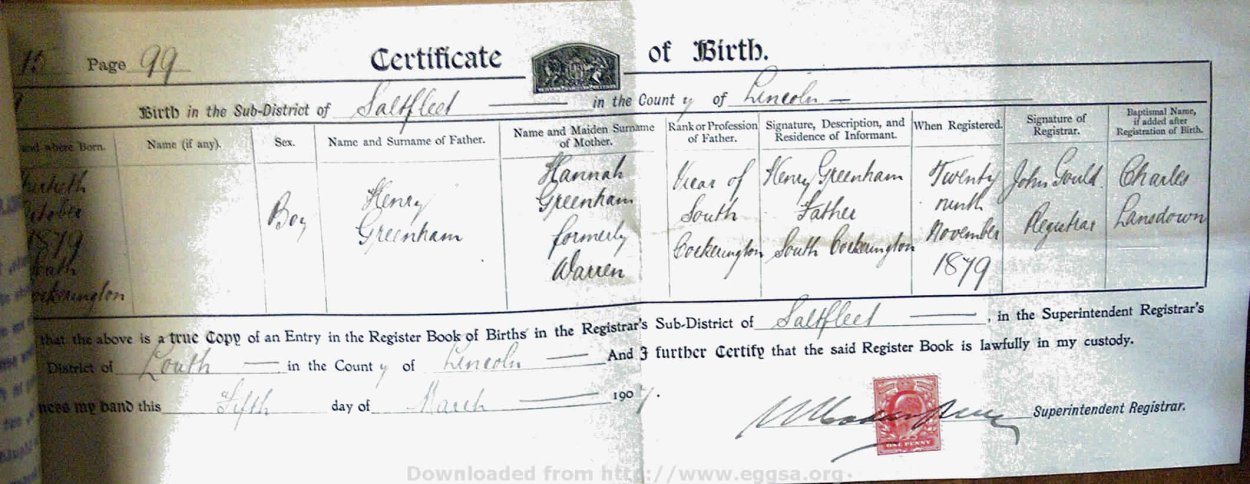 15 Page 99 Certificate of Birth.
Birth in the Sub-District of Saltfleet in the County of Lincoln
and where Born. Name (if any). Sex. Name and Surname of Father. Name and Maiden Surname of Mother. Rank or Profession of Father. Signature, Description, and Residence of Informant. When Registered. Signature of Registrar. Baptismal Name, if added after Registration of Birth.
1879
South
Cockerington
Boy
Henry
Greenham
Hannah
Greenham
formerly
Warren
Vicar of
South
Cockerington
Henry Greenham
Father
South Cockerington
Twenty
ninth
November
1879
John Gould
Registrar
Charles
Lansdown
that the above is a true Copy of an Entry in the Register Book of Births in the Registrar's Sub-District of Saltfleet, in the Superintendent Registrar's
District of Louth in the County of Lincoln And I further Certify that the said Register Book is lawfully in my custody.
ness my hand this Fifth day of March 1907.
Superintendent Registrar.
ONE PENNY
Downloaded from http://www.eggsa.org